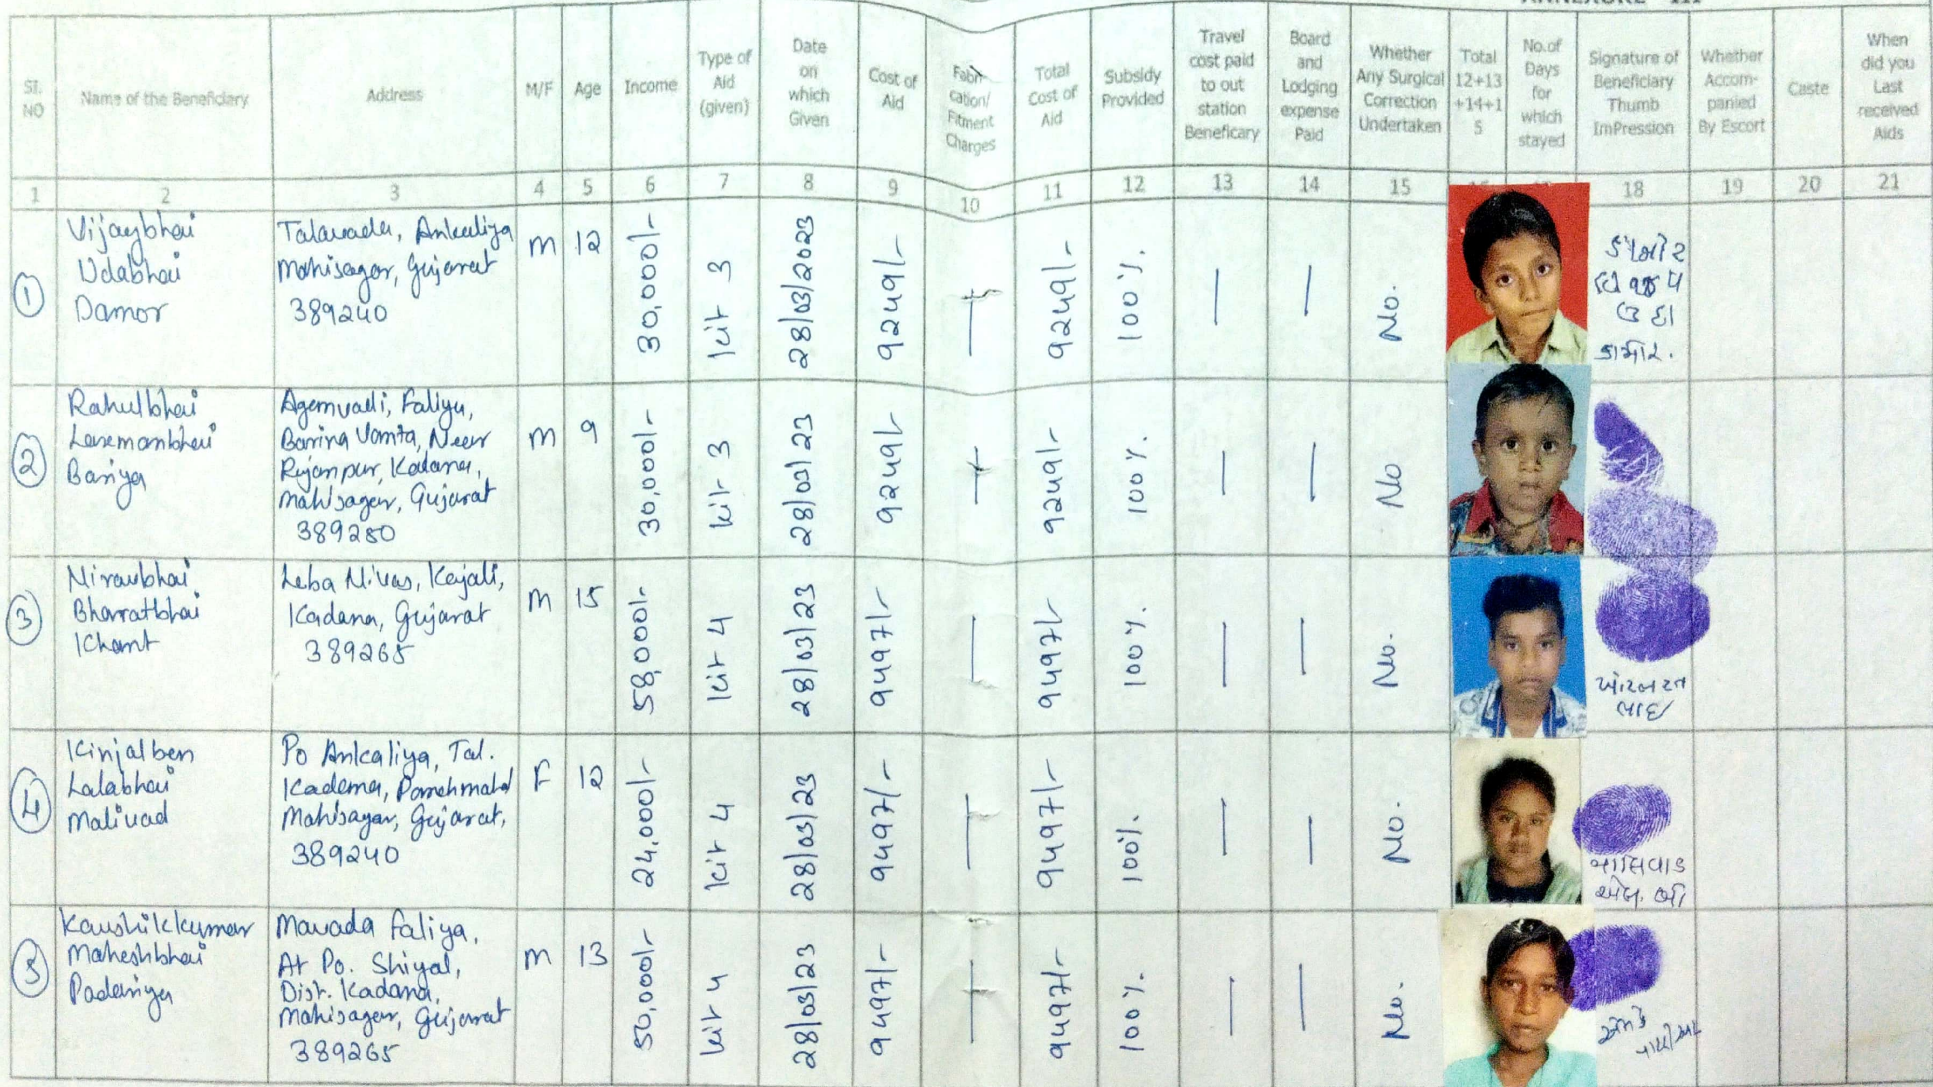 ANNEXURE - III
Sr. NO
Name of the Beneficiary
Address
M/F
Age
Income
Type of Aid (given)
Date on which Given
Cost of Aid
Fabri cation/ Fitment Charges
Total Cost of Aid
Subsidy Provided
Travel cost paid to out station Beneficary
Board and Lodging expense Paid
Whether Any Surgical Correction Undertaken
Total 12+13 +14+1 5
No.of Days for which stayed
Signature of Beneficiary Thumb ImPression
Whether Accom- panied By Escort
Caste
When did you Last received Aids
1 2 3 4 5 6 7 8 9 10 11 12 13 14 15 18 19 20 21
1
Vijaybhai
Udabhai
Damor
Talavada, Ankaliya
Mahisagar, Gujarat
389240
M 12 30,000/- kit 3 28/03/2023 9249/- — 9249/- 100 %. — — No.
2
Rahulbhai
Laxmanbhai
Bariya
Agemvadi, Faliyu,
Barina Vamta, Near
Rejampur, Kadana,
Mahisagar, Gujarat
389280
M 9 30,000/- kit 3 28/03/23 9249/- — 9249/- 100 %. — — No
3
Niravbhai
Bharratbhai
Khant
Leba Nivas, Kejali,
Kadana, Gujarat
389265
M 15 58,000/- kit 4 28/03/23 9497/- — 9497/- 100 %. — — No.
ભાઈ
4
Kinjalben
Lalabhai
Malivad
Po Ankaliya, Tal.
Kadema, Panchmahal
Mahisagar, Gujarat,
389240
F 12 24,000/- kit 4 28/03/23 9497/- — 9497/- 100%. — — No.
માલિવાડ
5
Kaushikkumar
Maheshbhai
Padariya
Mavada Faliya,
At Po. Shiyal,
Dist. Kadana,
Mahisagar, Gujarat
389265
M 13 50,000/- kit 4 28/03/23 9497/- — 9497/- 100 %. — — No.